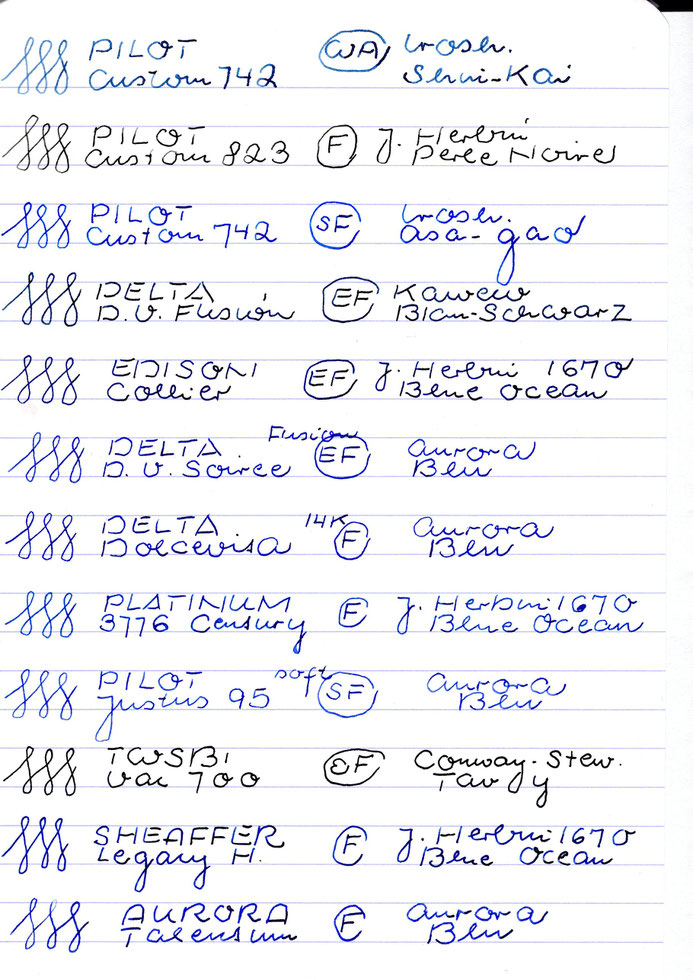 PILOT WA Irosh.
Custom 742 Shin-Kai
PILOT F J. Herbin
Custom 823 Perle Noire
PILOT SF Irosh.
Custom 742 asa-gao
DELTA EF Kaweco
D.V. Fusion Blau-Schwarz
EDISON EF J. Herbin 1670
Collier Blue Ocean
DELTA Fusion EF Aurora
D.V. Soiree Blu
DELTA 14K F Aurora
Dolcevita Blu
PLATINUM F J. Herbin 1670
3776 Century Blue Ocean
PILOT soft SF Aurora
Justus 95 Blu
TWSBI EF Conway-Stew.
Vac 700 Tavy
SHEAFFER F J. Herbin 1670
Legacy H. Blue Ocean
AURORA F Aurora
Talentum Blu